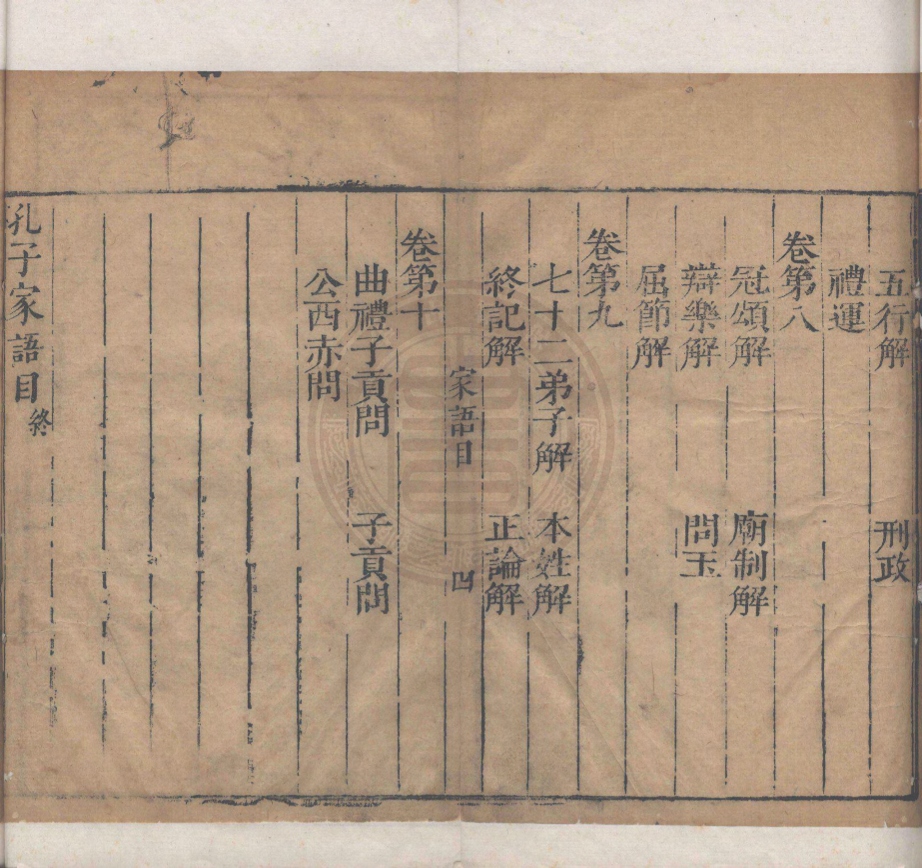 五行解 刑政
禮運
卷第八
冠頌解 廟制解
辯樂解 問玉
屈節解
卷第九
七十二弟子解 本姓解
終記解 正論解
家語目 四
卷第十
曲禮子貢問 子貢問
公西赤問
孔子家語目終